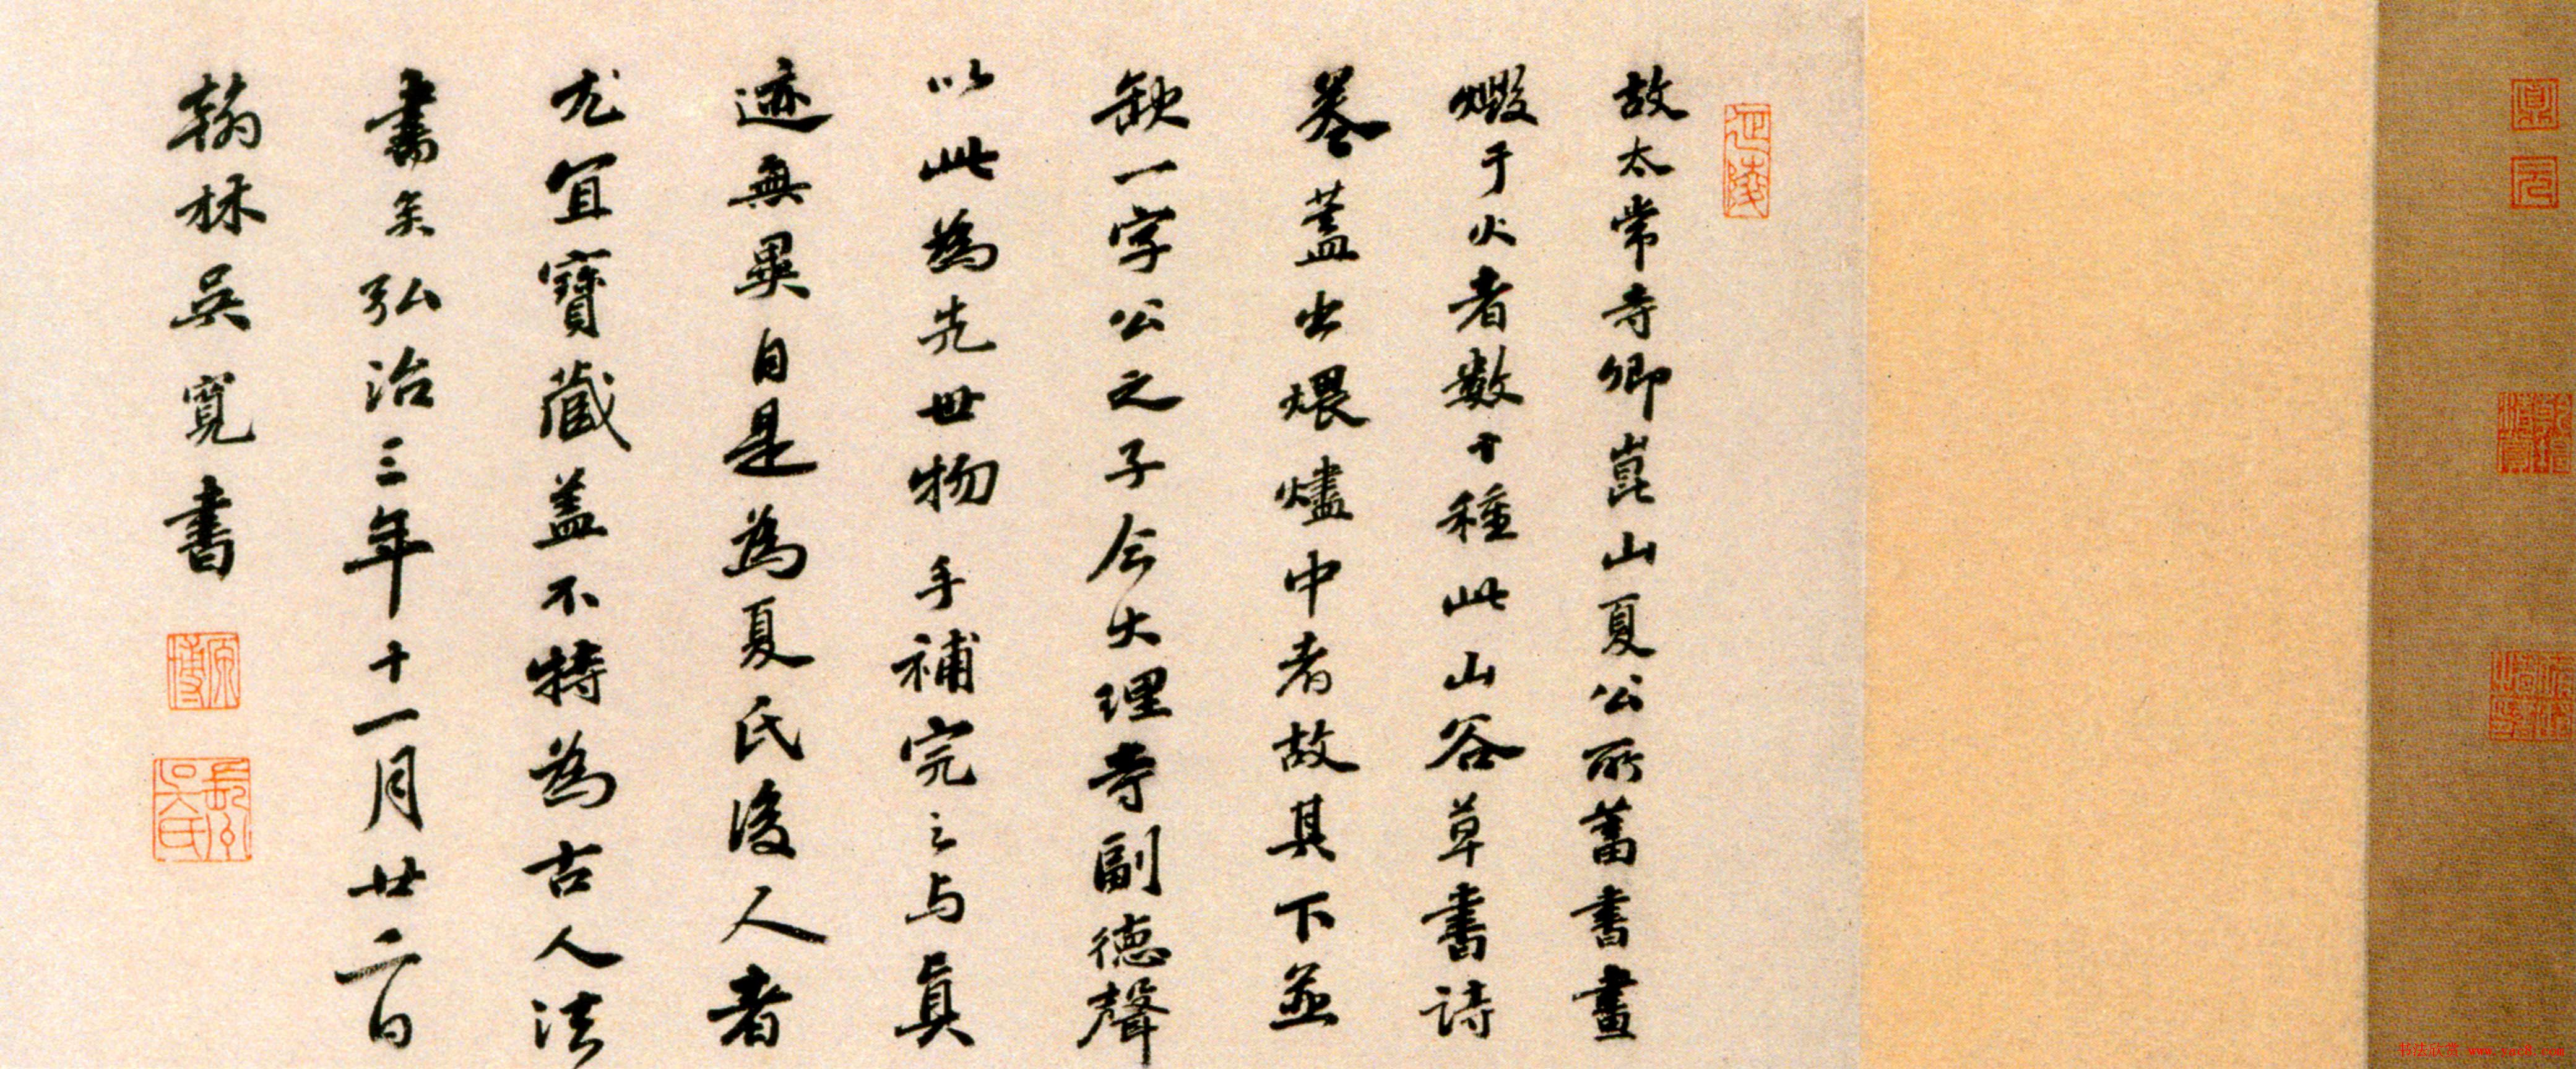 故太常寺卿崑山夏公所蓄書畫
燬于火者數十種此山谷草書詩
卷蓋出煨燼中者故其下並
缺一字公之子今大理寺副德聲
以此為先世物手補完之与真
迹無異自是為夏氏後人者
尤宜寶藏盖不特為古人法
書矣弘治三年十一月廿二日
翰林吳寬書
原博
書法欣賞 www.yac8.com